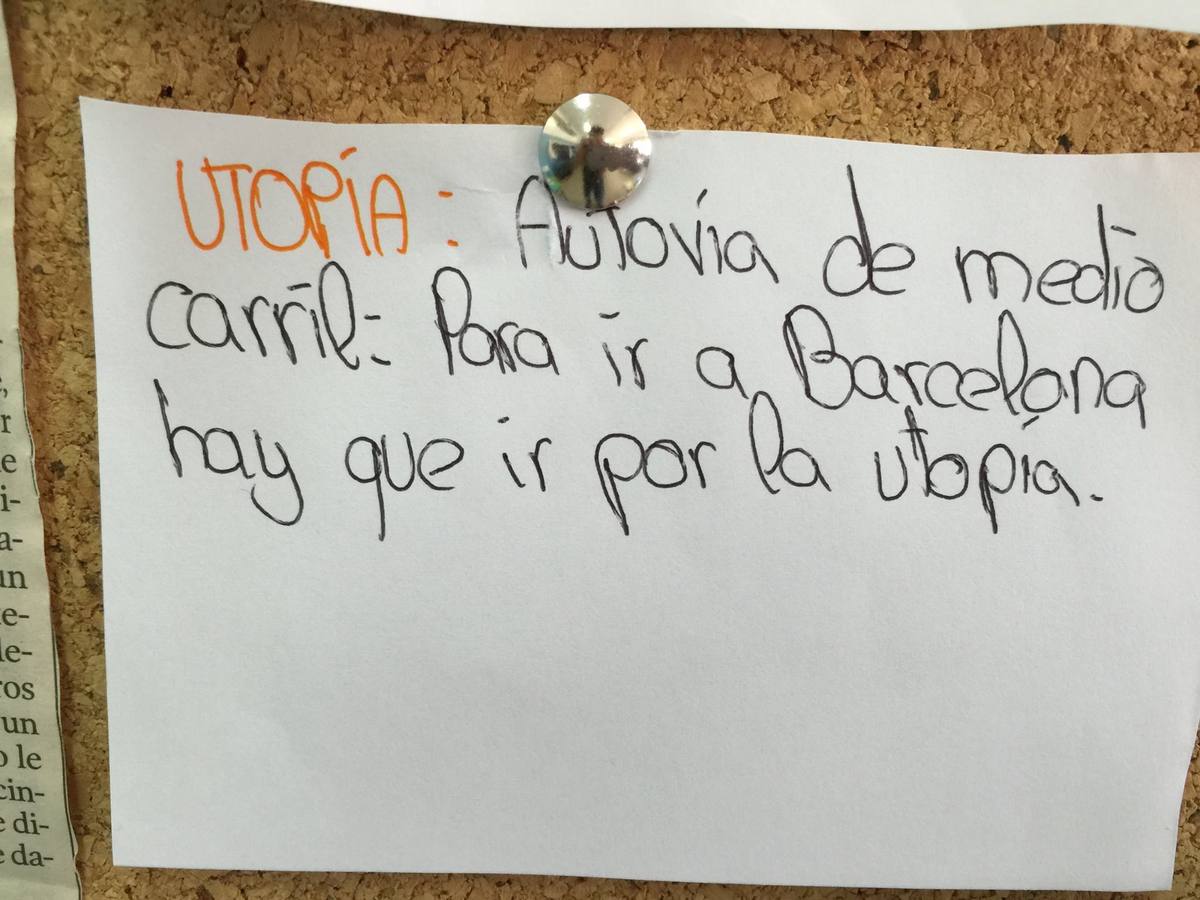 UTOPÍA: Autovía de medio
carril: Para ir a Barcelona
hay que ir por la utopía.
r
e
i-
a-
un
te-
le-
ros
un
o le
cin-
e di-
e da-